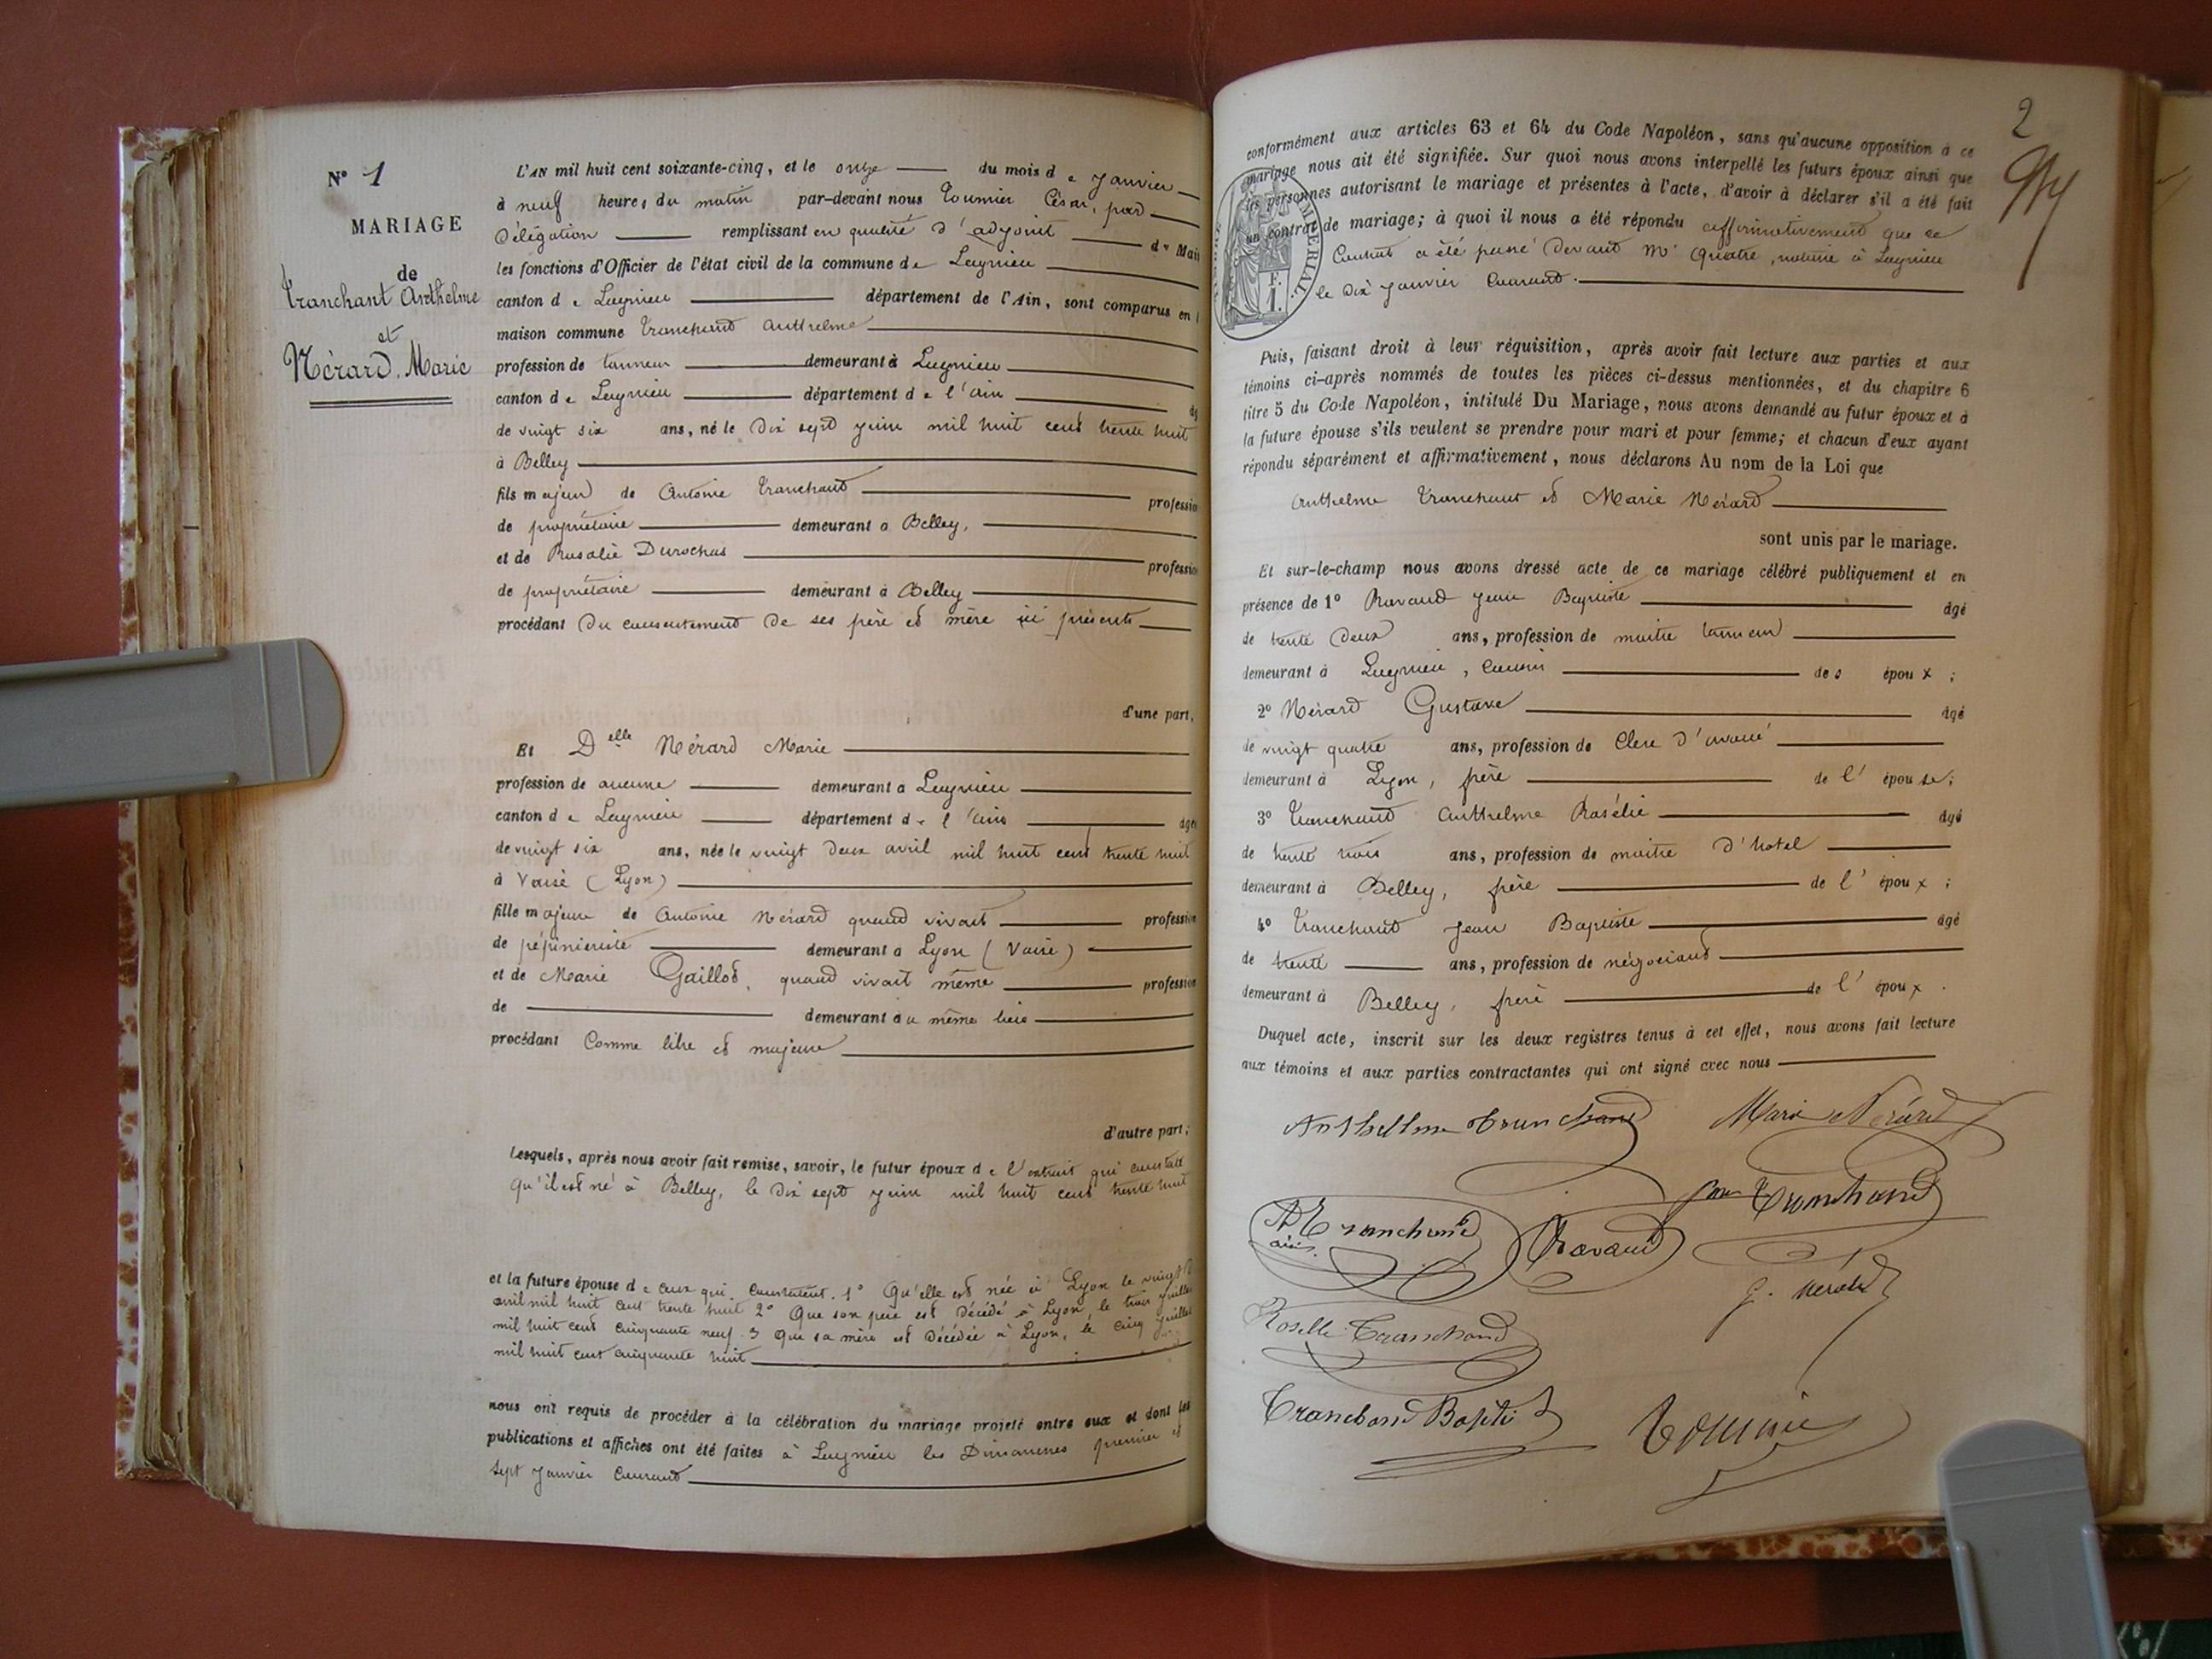 N° 1
MARIAGE
de
Tranchant Anthelme
et
Nérard. Marie
L'AN mil huit cent soixante-cinq, et le onze du mois de Janvier
à neuf heures du matin par-devant nous Tournier César, par
Délégation remplissant en qualité d'adjoint de Mai
les fonctions d'Officier de l'état civil de la commune de Lagnieu
canton de Lagnieu département de l'Ain, sont comparus en
maison commune Tranchand Anthelme
profession de tanneur demeurant à Lagnieu
canton de Lagnieu département de l'ain
de vingt six ans, né le dix sept juin mil huit cent trente huit
à Belley
fils majeur de Antoine Tranchand professio
de propriétaire demeurant à Belley,
et de Rosalie Durochas professio
de propriétaire demeurant à Belley
procédant du consentement de ses père et mère ici présents
d'une part,
Et Delle Nérard Marie
profession de aucune demeurant à Lagnieu
canton de Lagnieu département de l'ain âgée
de vingt six ans, née le vingt deux avril mil huit cent trente huit
à Vaise (Lyon)
fille majeure de Antoine Nérard quand vivait profession
de pépinieriste demeurant à Lyon (Vaise)
et de Marie Gaillod, quand vivait même profession
de demeurant au même lieu
procédant Comme libre et majeure
d'autre part;
Lesquels, après nous avoir fait remise, savoir, le futur époux de l'extrait qui constate
qu'il est né à Belley, le dix sept juin mil huit cent trente huit
et la future épouse de ceux qui constatent. 1° Qu'elle est née à Lyon le vingt
avril mil huit cent trente huit 2° Que son père est décédé à Lyon, le trois juillet
mil huit cent cinquante neuf. 3 Que sa mère est décédée à Lyon, le cinq juillet
mil huit cent cinquante huit
nous ont requis de procéder à la célébration du mariage projeté entre eux et dont les
publications et affiches ont été faites à Lagnieu les Dimanches premier et
sept janvier Courant
2
conformément aux articles 63 et 64 du Code Napoléon, sans qu'aucune opposition à ce
mariage nous ait été signifiée. Sur quoi nous avons interpellé les futurs époux ainsi que
les personnes autorisant le mariage et présentes à l'acte, d'avoir à déclarer s'il a été fait
un contrat de mariage; à quoi il nous a été répondu affirmativement que ce
Contrat a été passé devant Me Quatre, notaire à Lagnieu
le dix janvier Courant.
IMPERIAL.
F.
1.
Puis, faisant droit à leur réquisition, après avoir fait lecture aux parties et aux
témoins ci-après nommés de toutes les pièces ci-dessus mentionnées, et du chapitre 6
titre 5 du Code Napoléon, intitulé Du Mariage, nous avons demandé au futur époux et à
la future épouse s'ils veulent se prendre pour mari et pour femme; et chacun d'eux ayant
répondu séparément et affirmativement, nous déclarons Au nom de la Loi que
Anthelme Tranchant et Marie Nérard
sont unis par le mariage.
Et sur-le-champ nous avons dressé acte de ce mariage célébré publiquement et en
présence de 1° Ravaud Jean Baptiste âgé
de trente deux ans, profession de maitre tanneur
demeurant à Lagnieu, Cousin des époux;
2° Nérard Gustave âgé
de vingt quatre ans, profession de Clerc d'avoué
demeurant à Lyon, frère de l'épouse;
3° Tranchand Anthelme Rosélie âgé
de trente trois ans, profession de maitre d'hotel
demeurant à Belley, frère de l'époux;
4° Tranchand Jean Baptiste âgé
de trente ans, profession de négociant
demeurant à Belley, frère de l'époux.
Duquel acte, inscrit sur les deux registres tenus à cet effet, nous avons fait lecture
aux témoins et aux parties contractantes qui ont signé avec nous
Anthelme Tranchand Marie Nérard
Tranchand
A Tranchand
ainé Ravaud
G. Nérard
Roselli Tranchand
Tranchand Baptiste Tournier